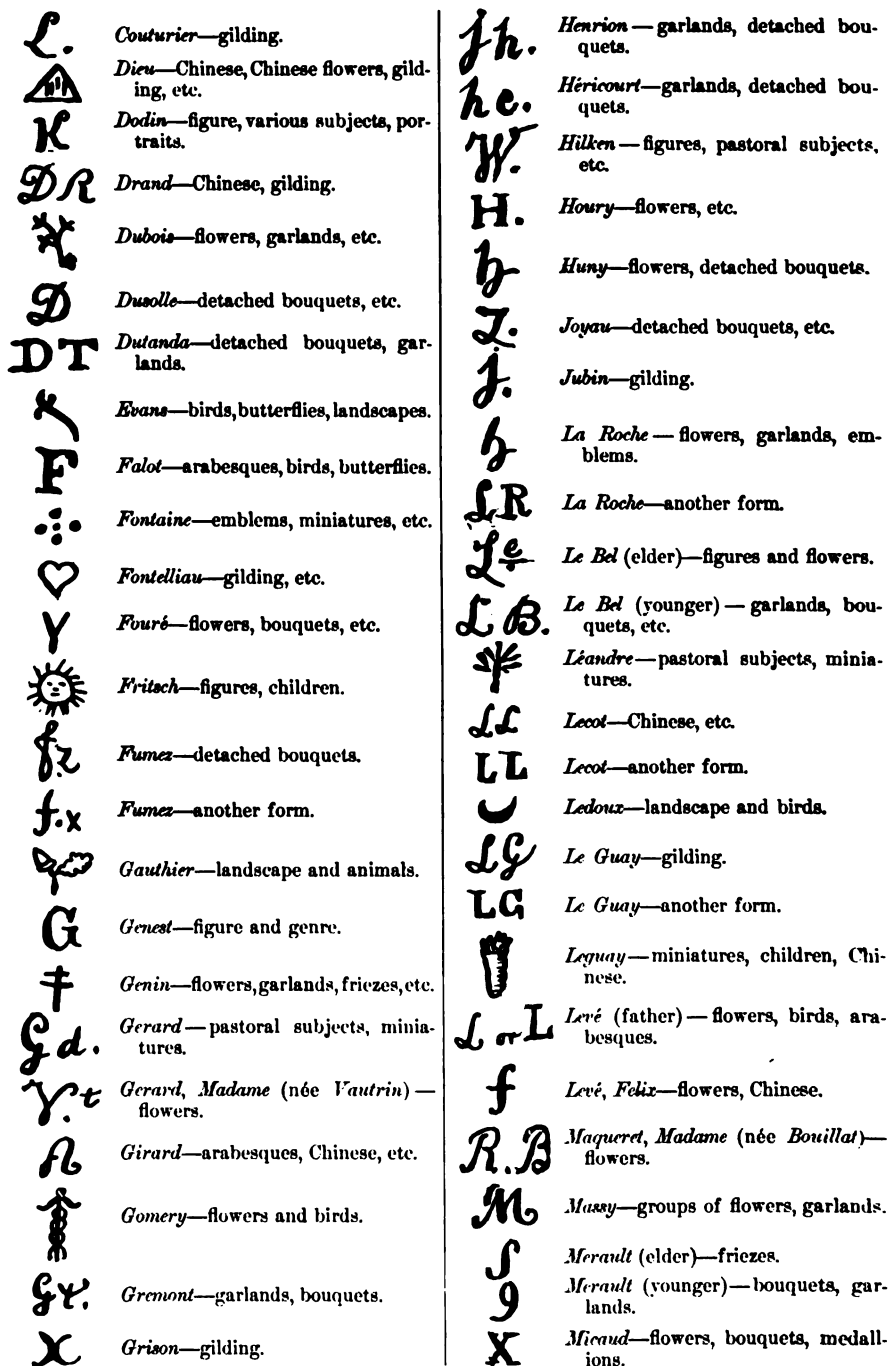 L. Couturier—gilding.
Dieu—Chinese, Chinese flowers, gild-
ing, etc.
K Dodin—figure, various subjects, por-
traits.
DR Drand—Chinese, gilding.
Dubois—flowers, garlands, etc.
D Dusolle—detached bouquets, etc.
DT Dutanda—detached bouquets, gar-
lands.
Evans—birds, butterflies, landscapes.
F Falot—arabesques, birds, butterflies.
Fontaine—emblems, miniatures, etc.
Fontelliau—gilding, etc.
Y Fouré—flowers, bouquets, etc.
Fritsch—figures, children.
fz Fumez—detached bouquets.
f.x Fumez—another form.
Gauthier—landscape and animals.
G Genest—figure and genre.
Genin—flowers, garlands, friezes, etc.
Gd. Gerard—pastoral subjects, minia-
tures.
V.t Gerard, Madame (née Vautrin)—
flowers.
Girard—arabesques, Chinese, etc.
Gomery—flowers and birds.
Gt. Gremont—garlands, bouquets.
X Grison—gilding.
jh. Henrion—garlands, detached bou-
quets.
he. Héricourt—garlands, detached bou-
quets.
W. Hilken—figures, pastoral subjects,
etc.
H. Houry—flowers, etc.
h Huny—flowers, detached bouquets.
Z. Joyau—detached bouquets, etc.
j. Jubin—gilding.
La Roche—flowers, garlands, em-
blems.
LR La Roche—another form.
Le Le Bel (elder)—figures and flowers.
LB. Le Bel (younger)—garlands, bou-
quets, etc.
Léandre—pastoral subjects, minia-
tures.
LL Lecot—Chinese, etc.
LL Lecot—another form.
Ledoux—landscape and birds.
LG Le Guay—gilding.
LG Le Guay—another form.
Leguay—miniatures, children, Chi-
nese.
L or L Levé (father)—flowers, birds, ara-
besques.
f Levé, Felix—flowers, Chinese.
R.B Maqueret, Madame (née Bouillat)—
flowers.
M Massy—groups of flowers, garlands.
S Merault (elder)—friezes.
9 Merault (younger)—bouquets, gar-
lands.
X Micaud—flowers, bouquets, medall-
ions.